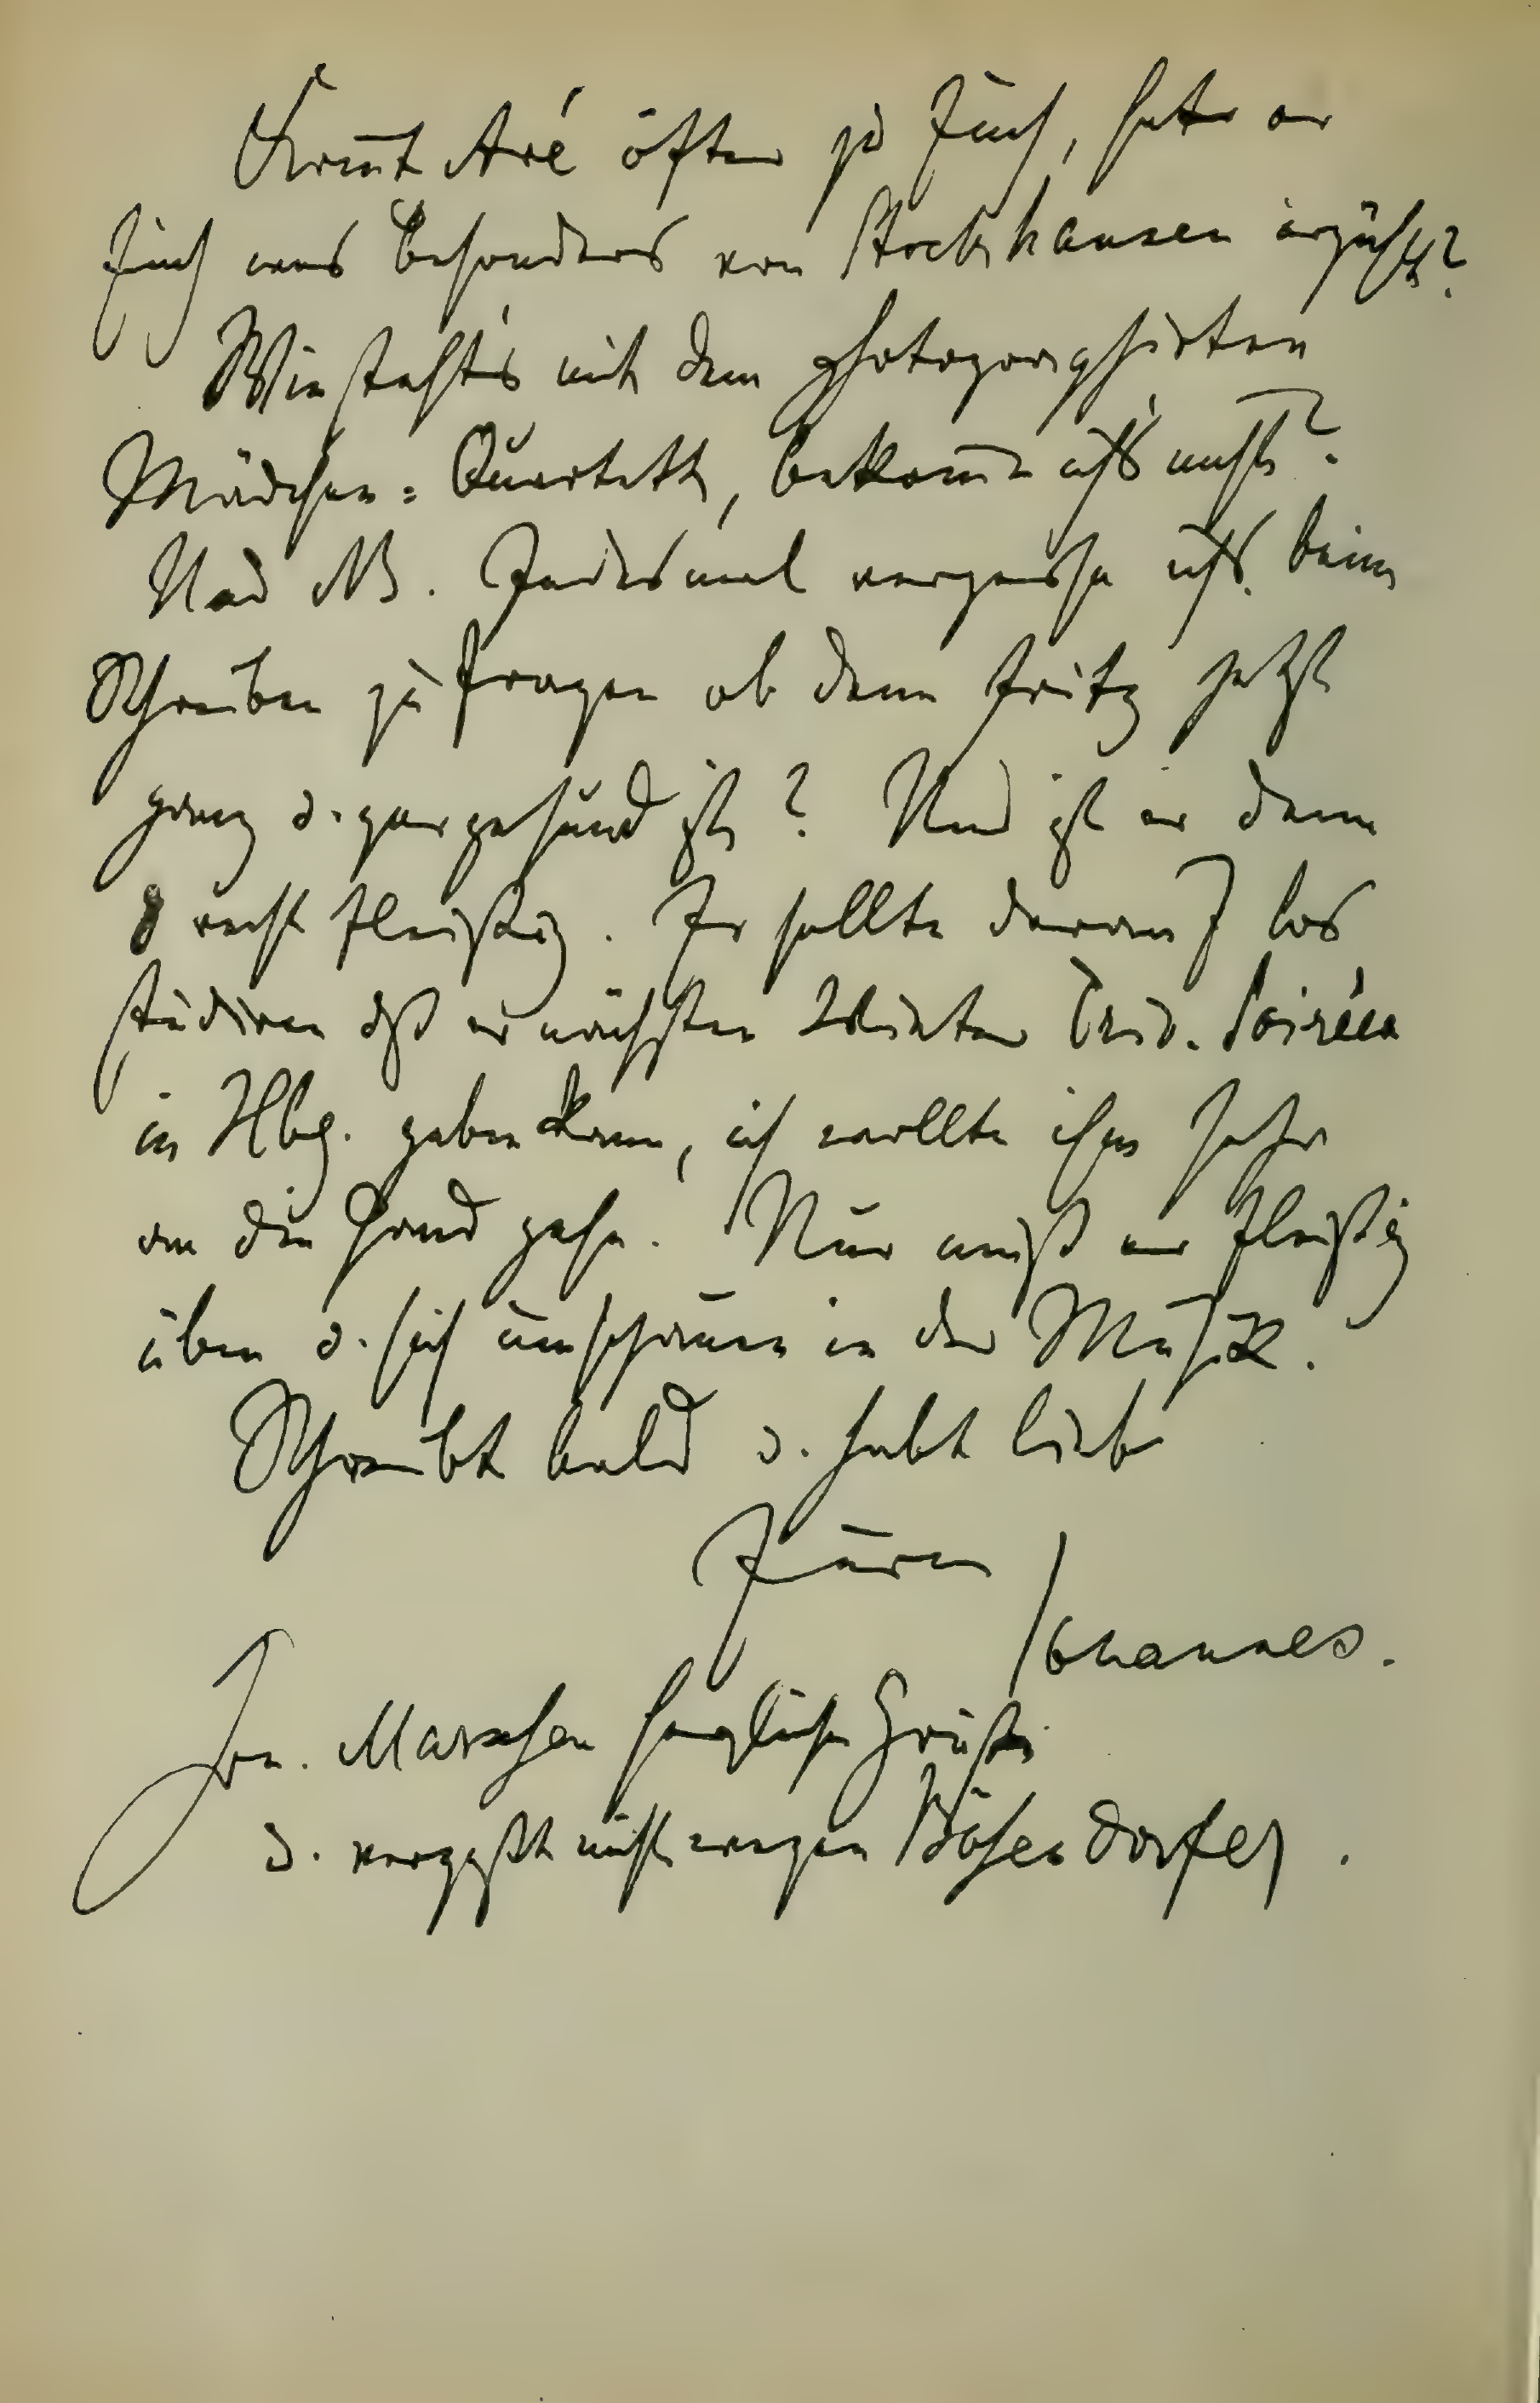 Kom̄t Avé öfter zu Euch, hat er
Euch was besonders von Stockhausen erzählt?
Wie steht's mit dem photographirten
Mädchen=Quartett, bekom̄e ich's nicht?
Und NB. Jedesmal vergesse ich's beim
Schreiben zu fragen ob denn Fritz jetzt
ganz u. gar gesund ist? Und ist er denn
recht fleißig. Er sollte darauf los
studiren daß er nächsten Winter Trio-Soiréen
in Hbg. geben kann, ich wollte ihm sehr
an die Hand gehn. Nur muß er fleißig
üben u. sich umschauen in der Musik.
Schreibt bald u. habt lieb
Euren
Johannes.
Hrn. Marxsen herzliche Grüße
u. vergeßt nicht wegen Bösendorfer.